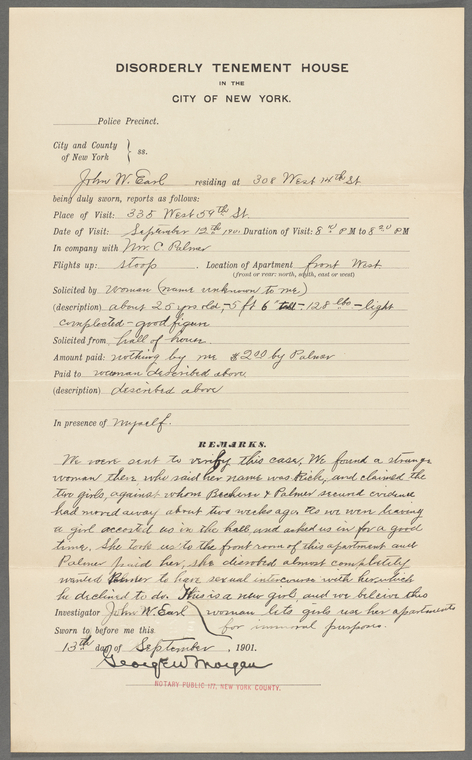 DISORDERLY TENEMENT HOUSE
IN THE
CITY OF NEW YORK.
Police Precinct.
City and County
of New York } ss.
John W. Earl residing at 308 West 14th St
being duly sworn, reports as follows:
Place of Visit: 335 West 59th St.
Date of Visit: September 12th 1901 Duration of Visit: 8 P M to 8 20 P M
In company with Wm. C. Palmer
Flights up: stoop. Location of Apartment front West
(front or rear: north, south, east or west)
Solicited by woman (name unknown to me)
(description) about 25 yrs old, -5 ft 6" tall- 128 lbs - light
complected - good figure
Solicited from hall of house.
Amount paid: nothing by me $2.00 by Palmer
Paid to woman described above
(description) described above
In presence of myself.
REMARKS.
We were sent to verify this case. We found a strange
woman there who said her name was Rich, and claimed the
two girls, against whom & Palmer secured evidence
had moved away about two weeks ago. As we were leaving
a girl accosted us in the hall, and asked us in for a good
time. She took us to the front room of this apartment and
Palmer paid her, she disrobed almost completely
wanted Palmer to have sexual intercourse with her which
he declined to do. This is a new girl, and we beleive this
Investigator John W. Earl woman lets girls use her apartments
for immoral purpose.
Sworn to before me this
13th day of September, 1901.
George W Morgan
NOTARY PUBLIC 177, NEW YORK COUNTY.